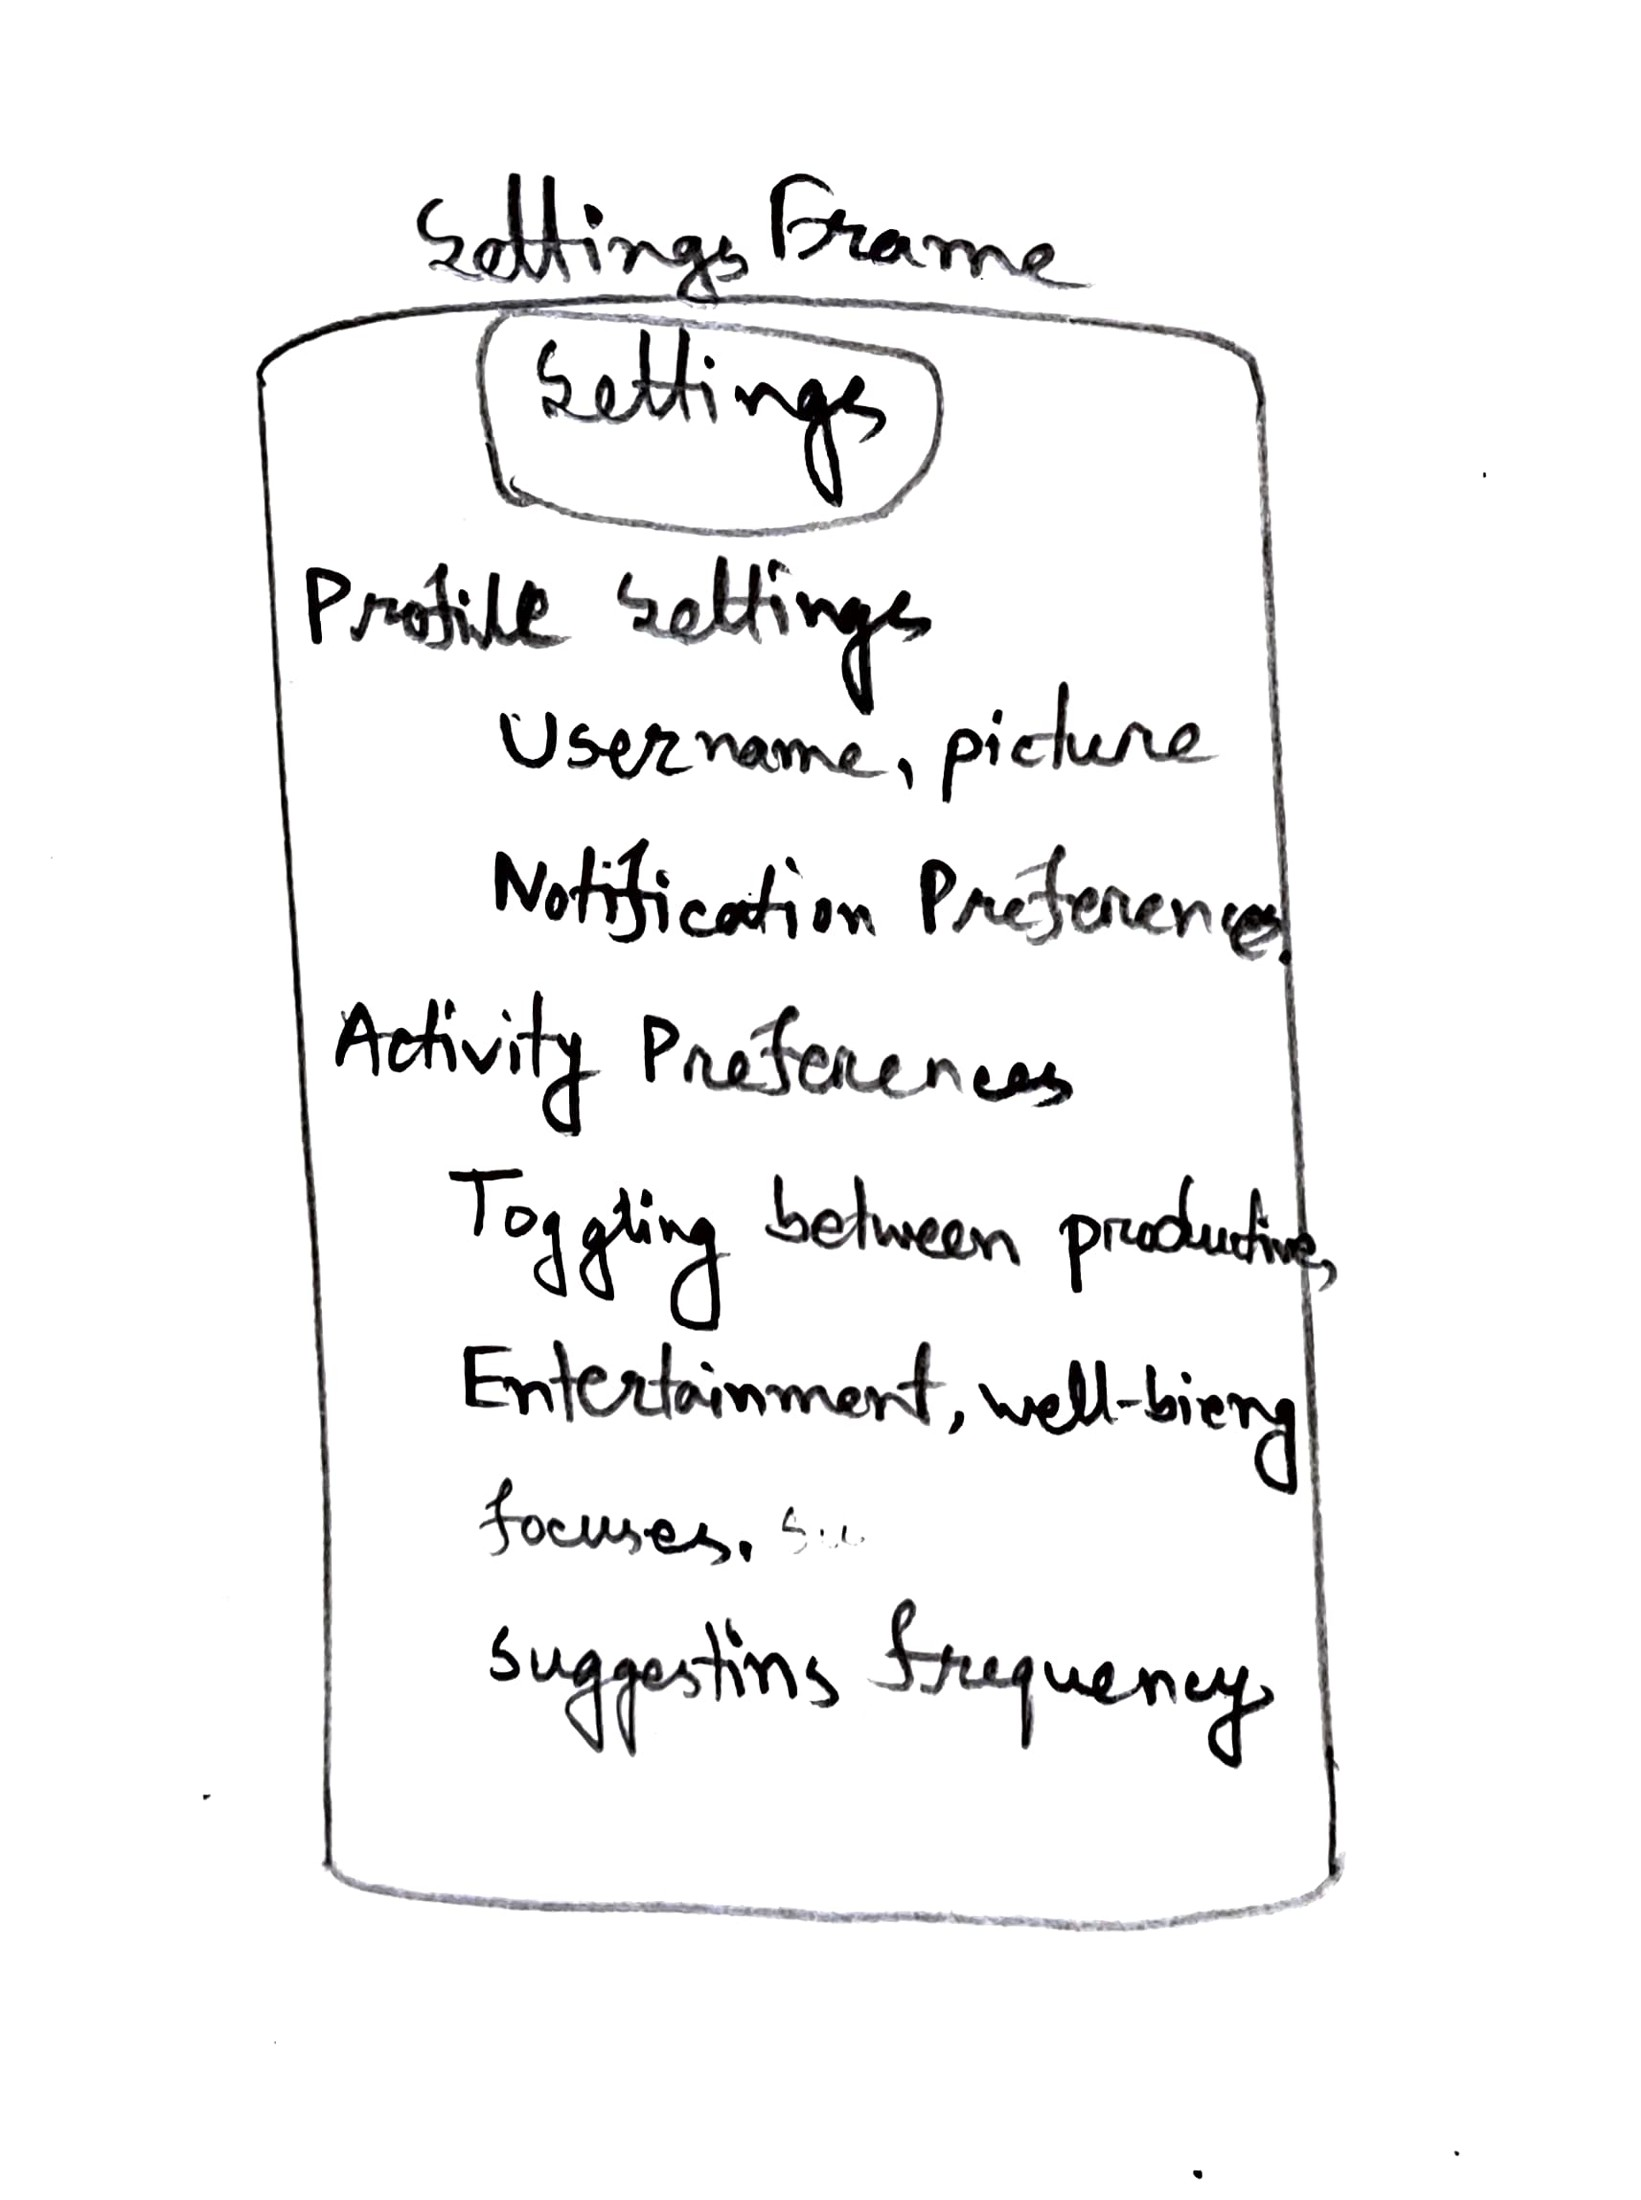 Settings Frame
Settings
Profile Settings
Username, picture
Notification Preferences.
Activity Preferences
Toggling between productive,
Entertainment, well-bieng
focuses.
suggestins frequency